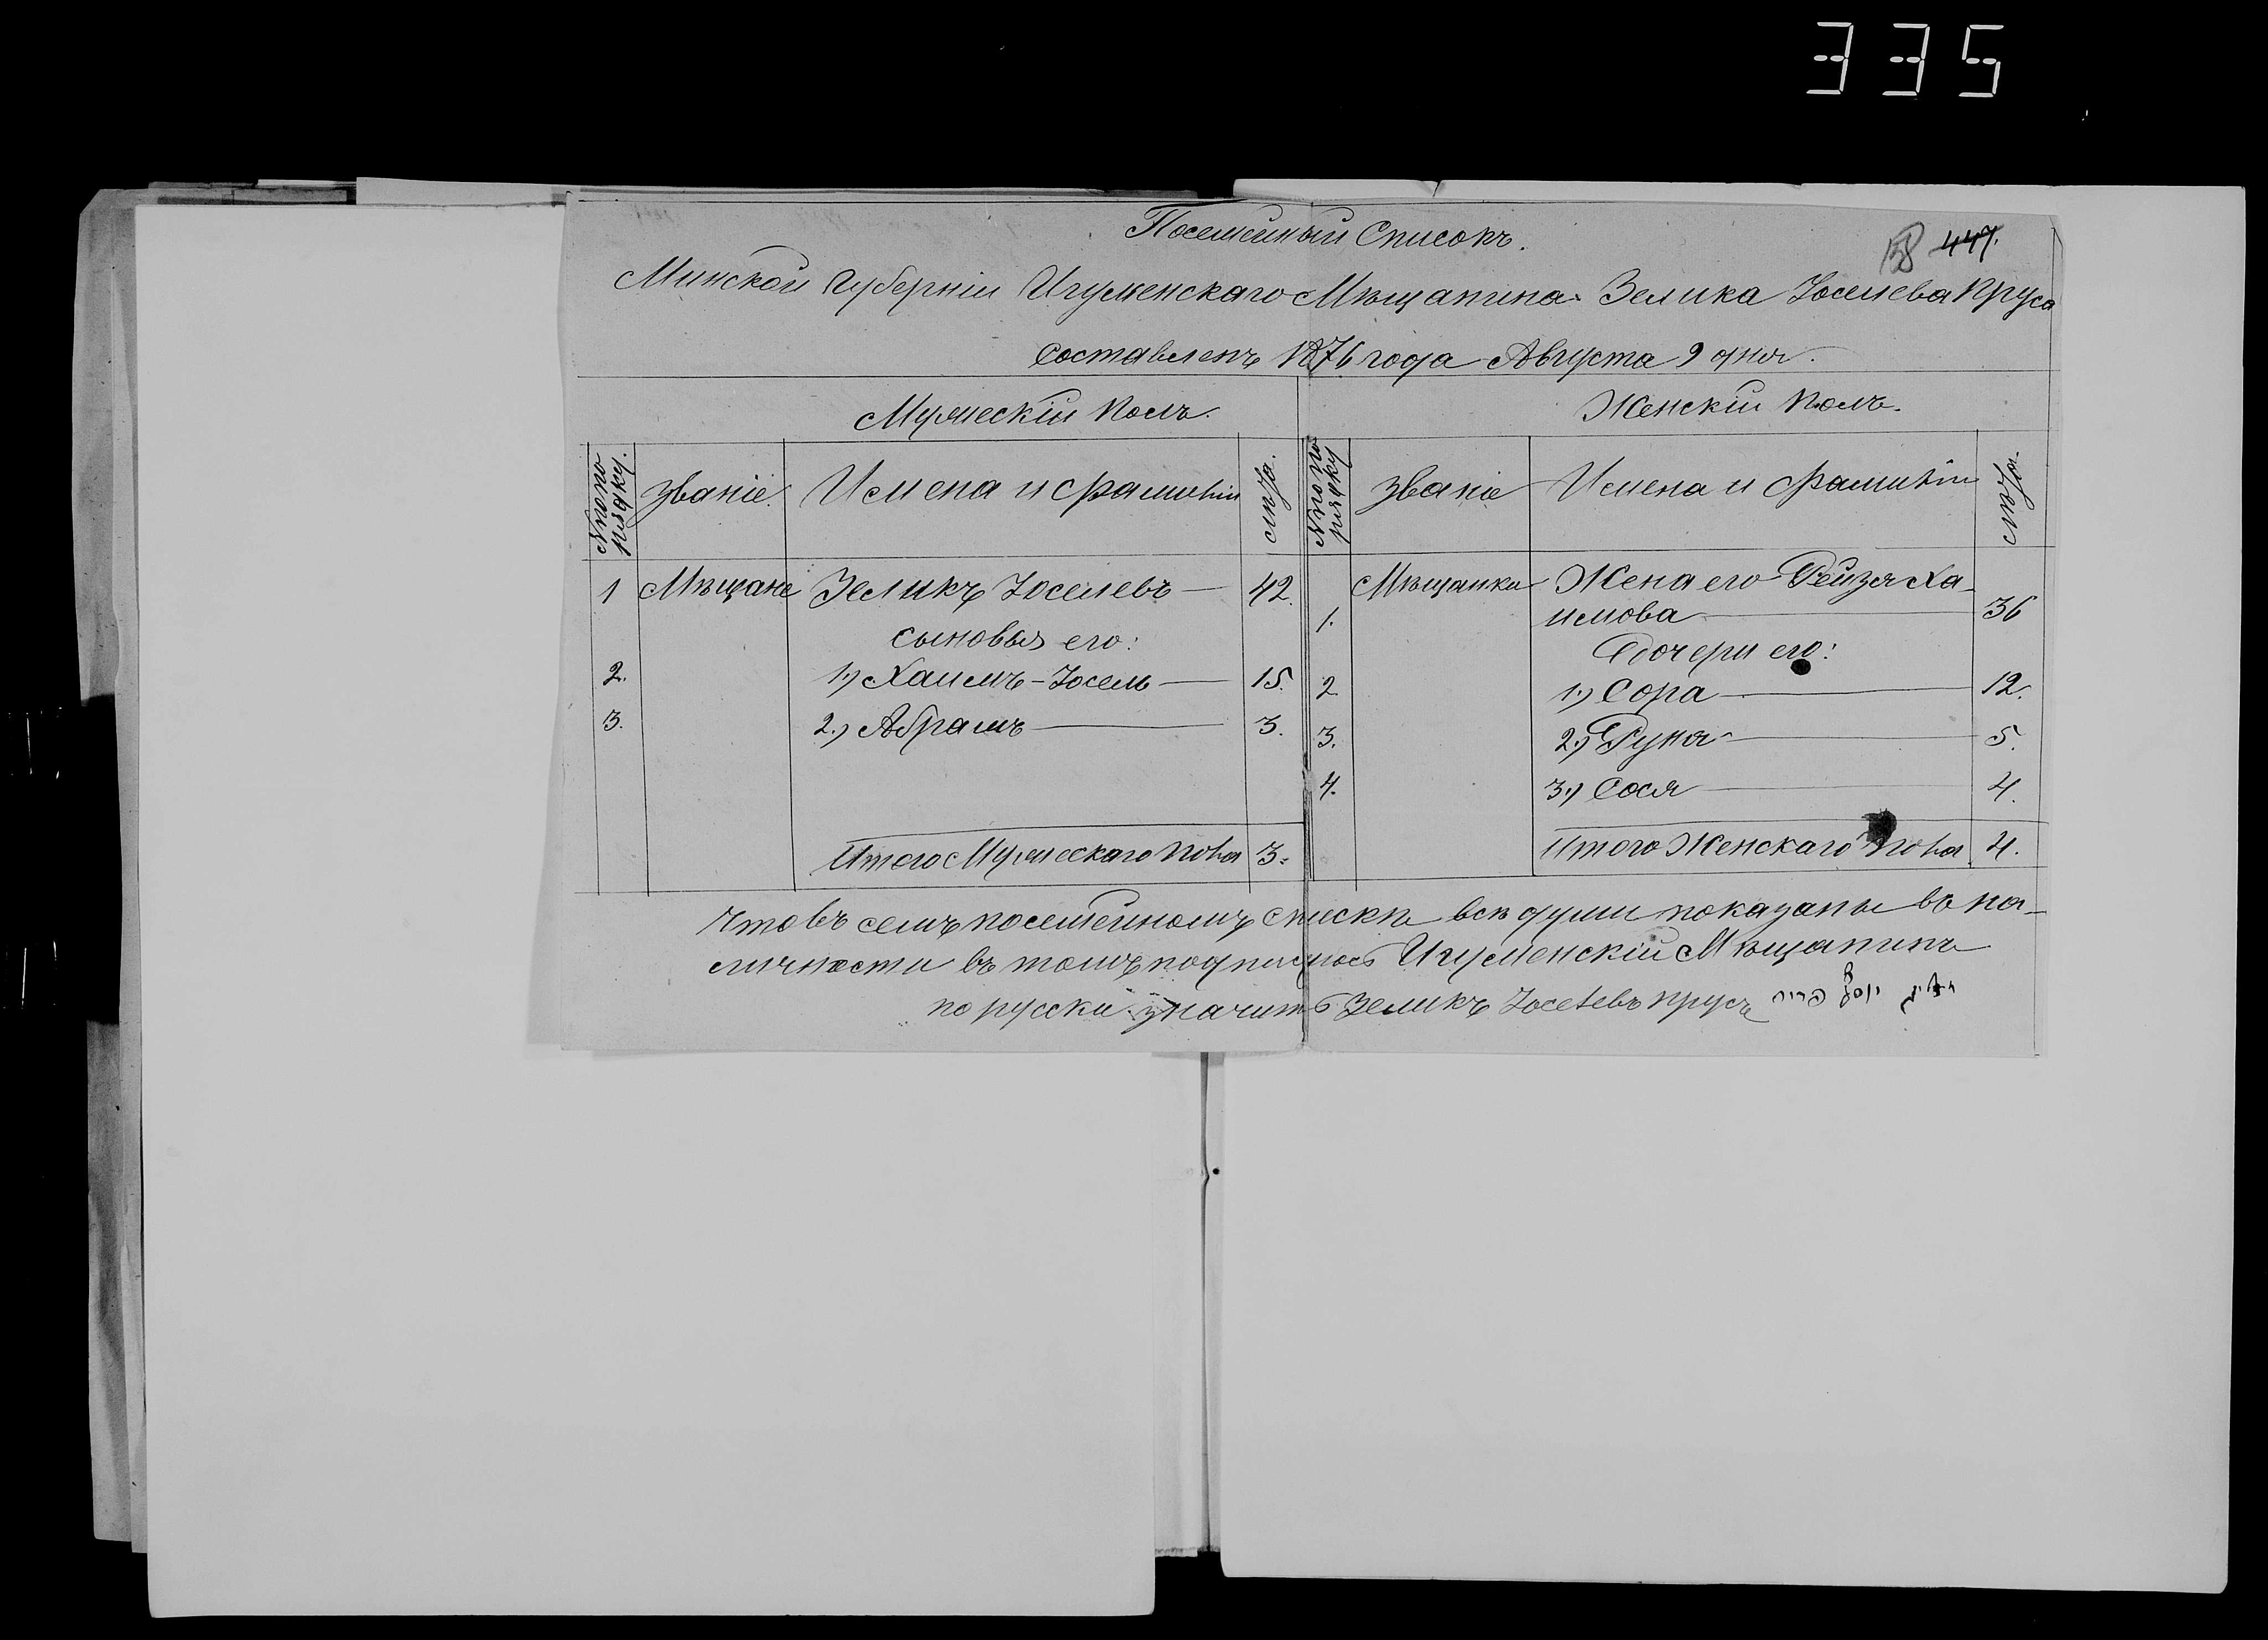 335
Посемейный Списокъ.
158 447.
Минской Губерніи Игуменскаго Мѣщанина Зелика Іоселева Пруса
Составленъ 1876 года Августа 9 дня.
Мужескій Полъ. Женскій Полъ.
№ по порядку. Званіе. Имена и Фамиліи Лѣта. № по порядку Званіе Имена и Фамиліи Лѣта.
1 Мѣщане Зеликъ Іоселевъ — 42. Мѣщанки Жена его Рейзя Ха-
1. имова — 36
сыновья его: Дочери его:
2. 1.) Хаимъ-Іосель — 15. 2 1.) Сора — 12.
3. 2.) Абрамъ — 3. 3. 2.) Руня — 5.
4. 3.) Сося — 4.
Итого Мужескаго пола 3. Итого Женскаго пола 4.
Что въ семъ посемейномъ спискѣ всѣ души показаны въ на-
личности въ томъ подписуюсь Игуменскій Мѣщанинъ
по русски значитъ Зеликъ Іоселевъ Прусъ